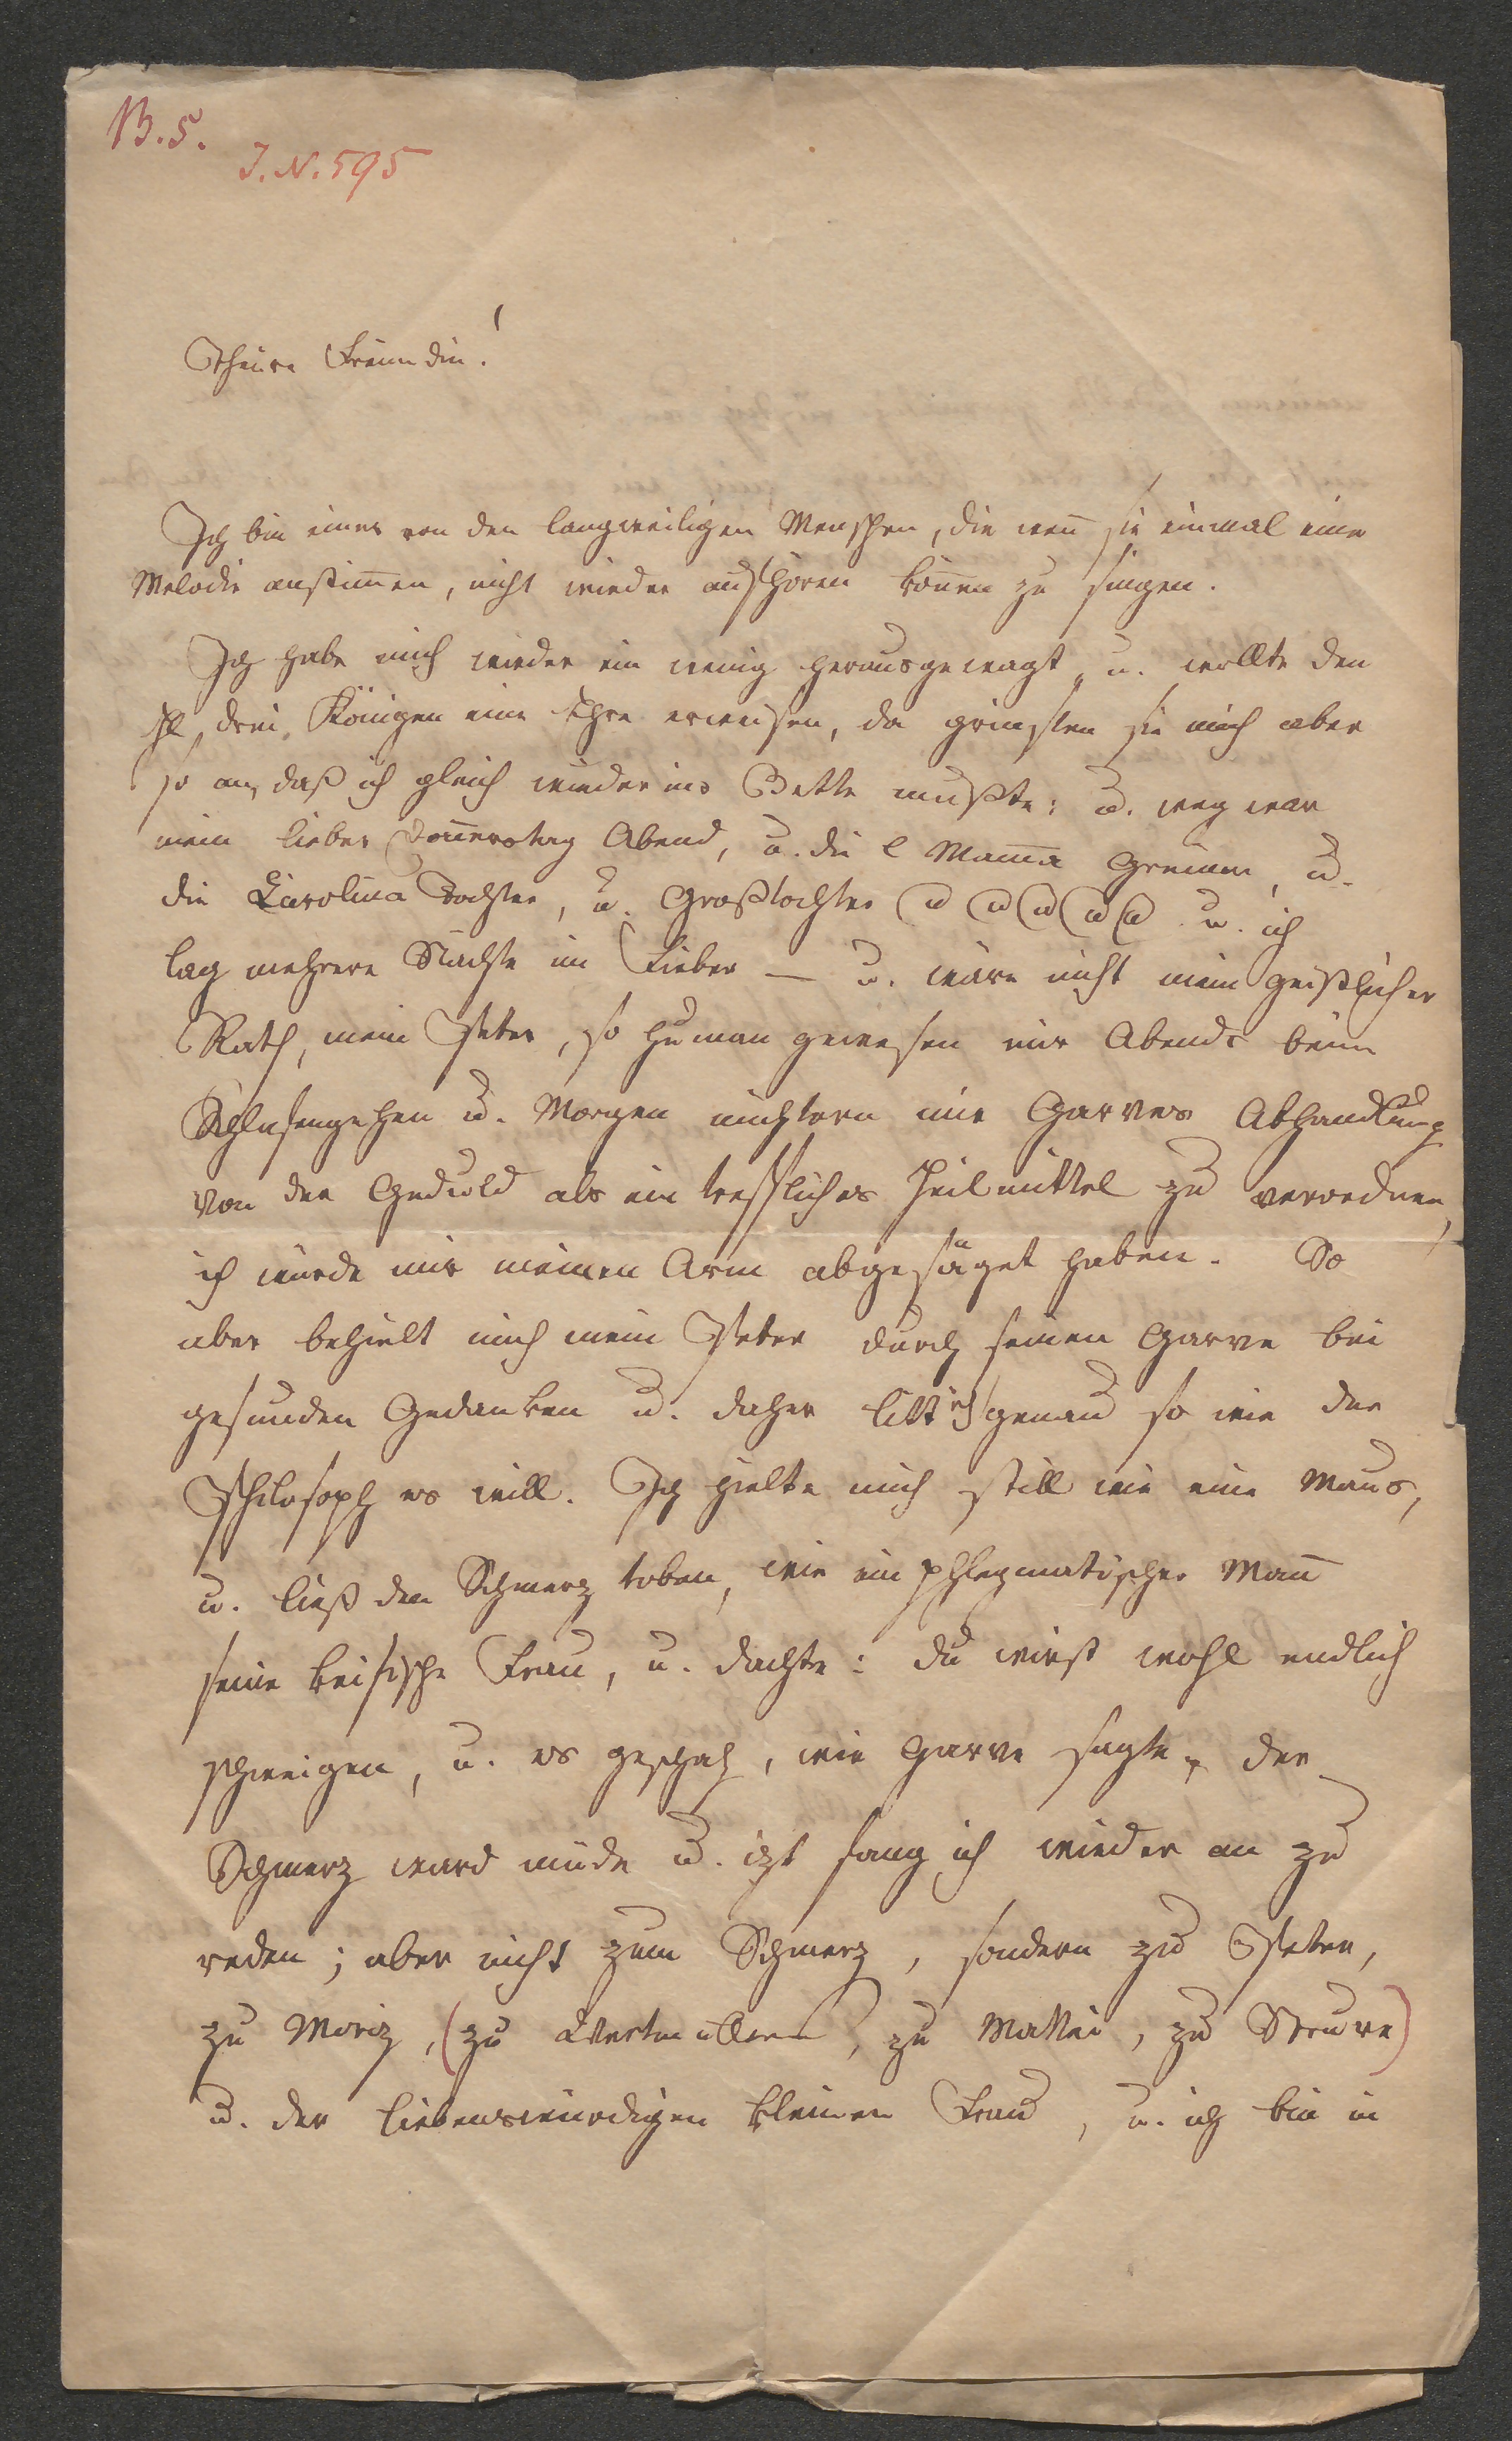 B. 5.
J. N. 595
Theure Freundin!
Ich bin einer von den langweiligen Menschen, die wen̄ sie einmal eine
Melodie anstim̄en, nicht wieder aufhören kön̄en zu singen.
Ich habe mich wieder ein wenig herausgewagt, u. wollte den
hl. drei Königen eine Ehre erweisen, da grinsten sie mich aber
so an, daß ich gleich wieder ins Bette mußte: u. weg war
mein lieber Don̄erstag Abend, u. die l Mam̄a Greiner, u.
die Carolina Tochter, u. Großtochter u u u u u u. ich
lag mehrere Nächte im Fieber — u. wäre nicht mein geistlicher
Rath, mein Peter, so human gewesen mir Abends beim
Schlafengehen u. Morgen nüchtern mir Garves Abhandlung
von der Geduld als ein treffliches Heilmittel zu verordnen,
ich würde mir meinen Arm abgesäget haben. So
aber behielt mich mein Peter durch seinen Garve bei
gesunden Gedanken u. daher litt ich genau so wie der
Philosoph es will. Ich hielte mich still wie eine Maus,
u. ließ den Schmerz toben, wie ein phlegmatischer Man̄
seine keifische Frau, u. dachte: du wirst wohl endlich
schweigen, u. es geschah, wie Garve sagte, der
Schmerz ward müde u. izt fang ich wieder an zu
reden; aber nicht zum Schmerz, sondern zu Peter,
zu Moriz, (zu Wertmüllern, zu Mattei, zu Steure)
u. der liebenswürdigen kleinen Frau, u. ich bin in